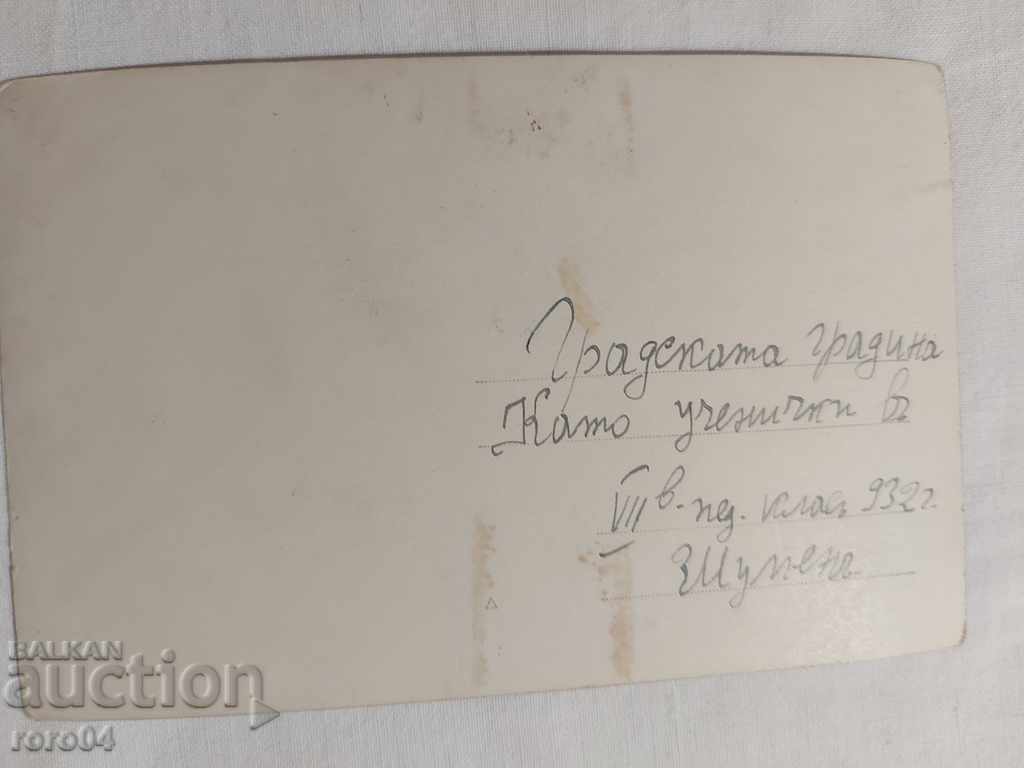 Градската градина
Като ученички въ
VII в-пед. класъ 932 г.
Шуменъ
BALKAN
auction
roro04